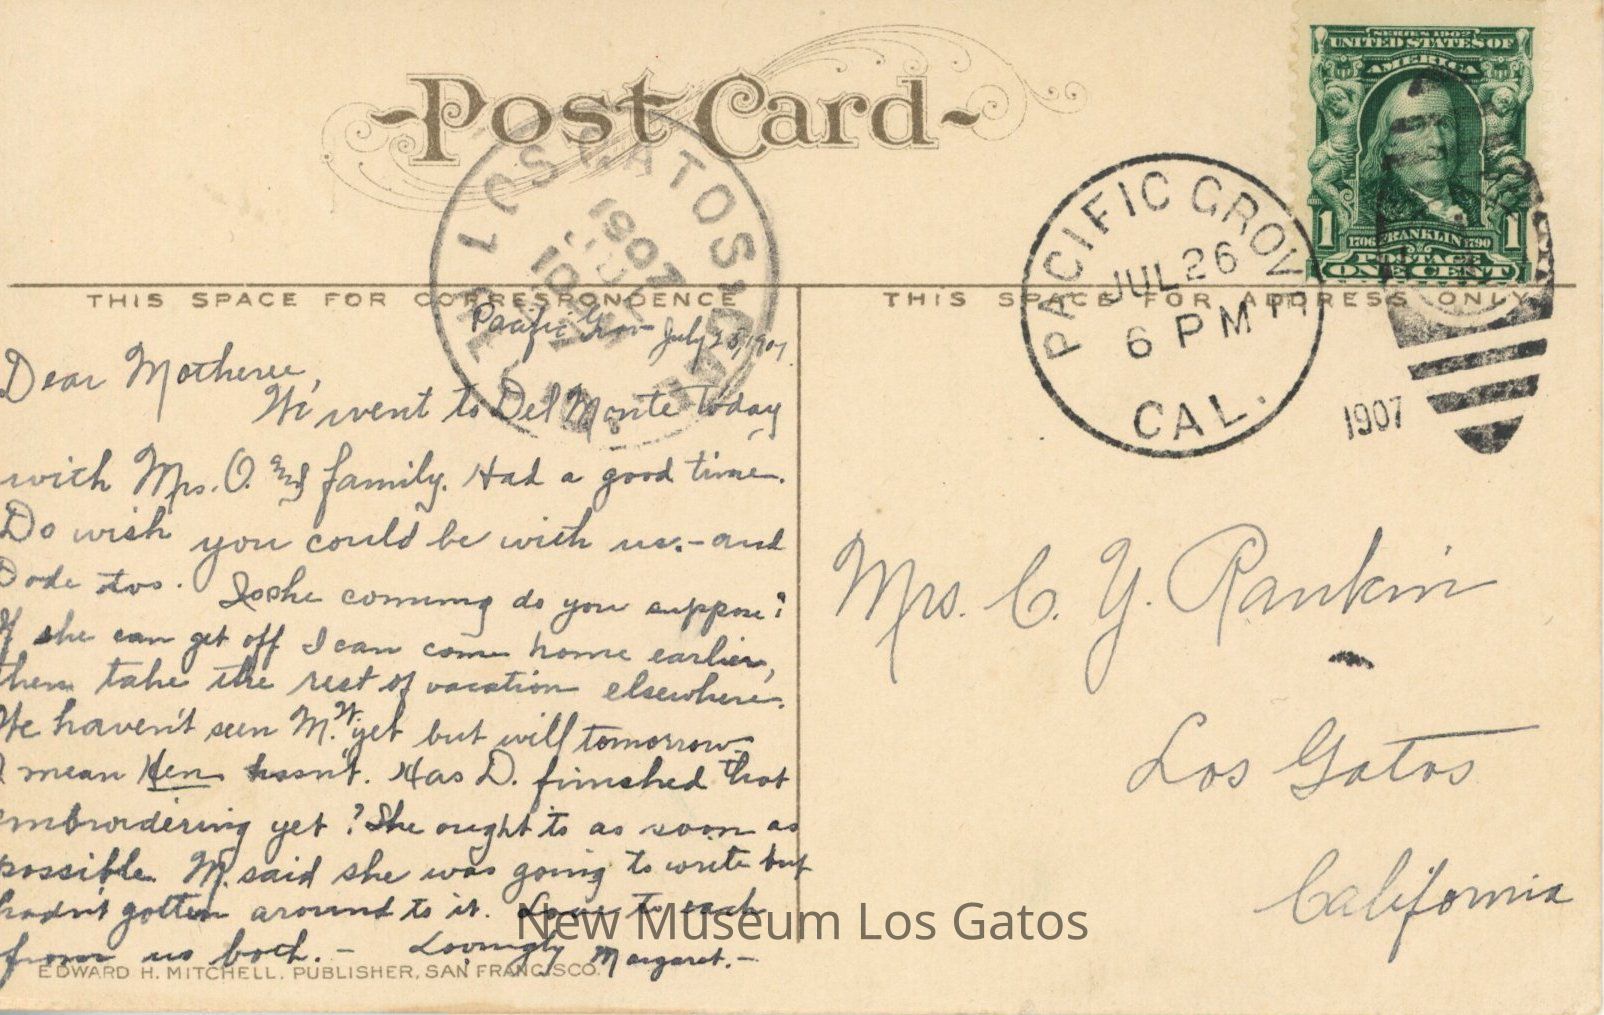 Post Card
SERIES 1902
UNITED STATES OF
AMERICA
1 1706 FRANKLIN 1790 1
POSTAGE
ONE CENT
LOS GATOS
1907
JUL
10
PACIFIC GROVE
JUL 26
6 PM
CAL.
1907
THIS SPACE FOR CORRESPONDENCE
THIS SPACE FOR ADDRESS ONLY
Pacific Grove July 25, 1907.
Dear Motheree,
We went to Del Monte today
with Mrs. O. and family. Had a good time.
Do wish you could be with us.- and
Dode too. Is she coming do you suppose?
If she can get off I can come home earlier,
then take the rest of vacation elsewhere.
We haven't seen M. W. yet but will tomorrow
I mean Hen hasn't. Has D. finished that
embroidering yet? She ought to as soon as
possible. M. said she was going to write but
hadn't gotten around to it. Love to each
from us both. - Lovingly Margaret. -
Mrs. C. Y. Rankin
Los Gatos
California
New Museum Los Gatos
EDWARD H. MITCHELL, PUBLISHER, SAN FRANCISCO.